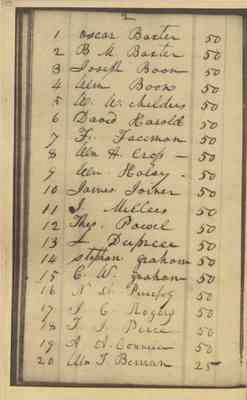 2
1 Oscar Baxter 50
2 B M Baxter 50
3 Joseph Boon 50
4 Wm Boon 50
5 W. W. Childers 50
6 David Harold 50
7 F. 50
8 Wm H. Cross — 50
9 Wm 50
10 James Joiner 50
11 J Millers 50
12 Thos. Powel 50
13 — Dupree 50
14 Stephen Graham 50
15 C. W. Graham 50
16 50
17 J. C. Rogers 50
18 T. J. Price 50
19 A. A. 50
20 Wm T. Berman 25